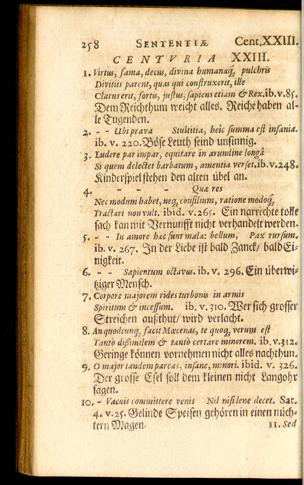 258 SENTENTIÆ Cent. XXIII.
CENTURIA XXIII.
1. Virtus, fama, decus, divina humanaq́, pulchris
Divitiis parent, quas qui construxerit, ille
Clarus erit, fortis, justus, sapiens etiam & Rex. ib. v. 85.
Dem Reichthum weicht alles. Reiche haben al-
le Tugenden.
2. - - Ubi prava Stultitia, heic summa est insania.
ib. v. 220. Böse Leuth seind unsinnig.
3. Ludere par impar, equitare in arundine longâ
Si quem delectet barbatum, amentia verset. ib. v. 248.
Kinderspiel stehen den alten übel an.
4. - - Quæ res
Nec modum habet, neq́, consilium, ratione modoq́,
Tractari non vult. ibid. v. 265. Ein narrechte tolle
sach kan mit Vernunfft nicht verhandelt werden.
5. - - In amore hæc sunt mala: bellum, Pax rursum.
ib. v. 267. In der Liebe ist bald Zanck/ bald Ei-
nigkeit.
6. - - Sapientum octavus. ib. v. 296. Ein überwi-
tziger Mensch.
7. Corpore majorem rides turbonis in armis
Spiritum & incessum. ib. v. 310. Wer sich grosser
Streichen außthut/ wird verlacht.
8. An quodcunq́, facit Mæcenas, te quoq́, verum est
Tantò dissimilem & tantò certare minorem. ib. v. 312.
Geringe können vornehmen nicht alles nachthun.
9. O major tandem parcas, insane, minori. ibid. v. 326.
Der grosse Esel soll dem kleinen nicht Langohr
sagen.
10. - Vacuis committere venis Nil nisi lene decet. Sat.
4. v. 25. Gelinde Speisen gehören in einen nüch-
tern Magen.
11. Sed